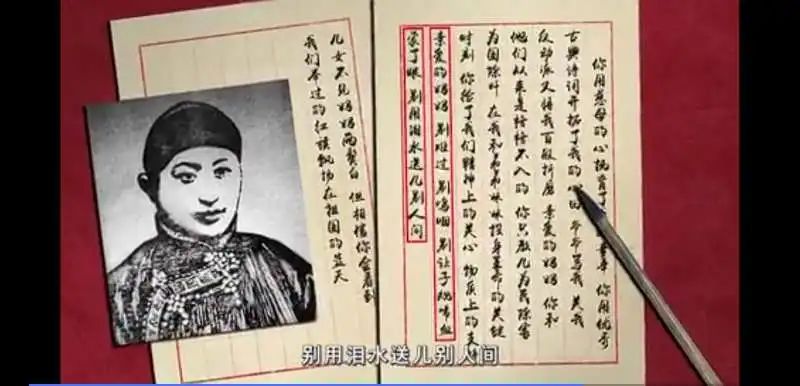 你用慈母的心抚育了我童年 你用优秀
古典诗词开拓了我的心田 爷爷骂我 关我
反动派又将我百般折磨 亲爱的妈妈 你和
他们从来是格格不入的 你只教儿为民除害
为国除奸 在我和弟弟妹妹投身革命的关键
时刻 你给了我们精神上的关心 物质上的支
亲爱的妈妈 别难过 别呜咽 别让子规啼血
蒙了眼 别用泪水送儿别人间
儿女不见妈妈两鬓白 但相信你会看到
我们举过的红旗飘扬在祖国的蓝天
别用泪水送儿别人间